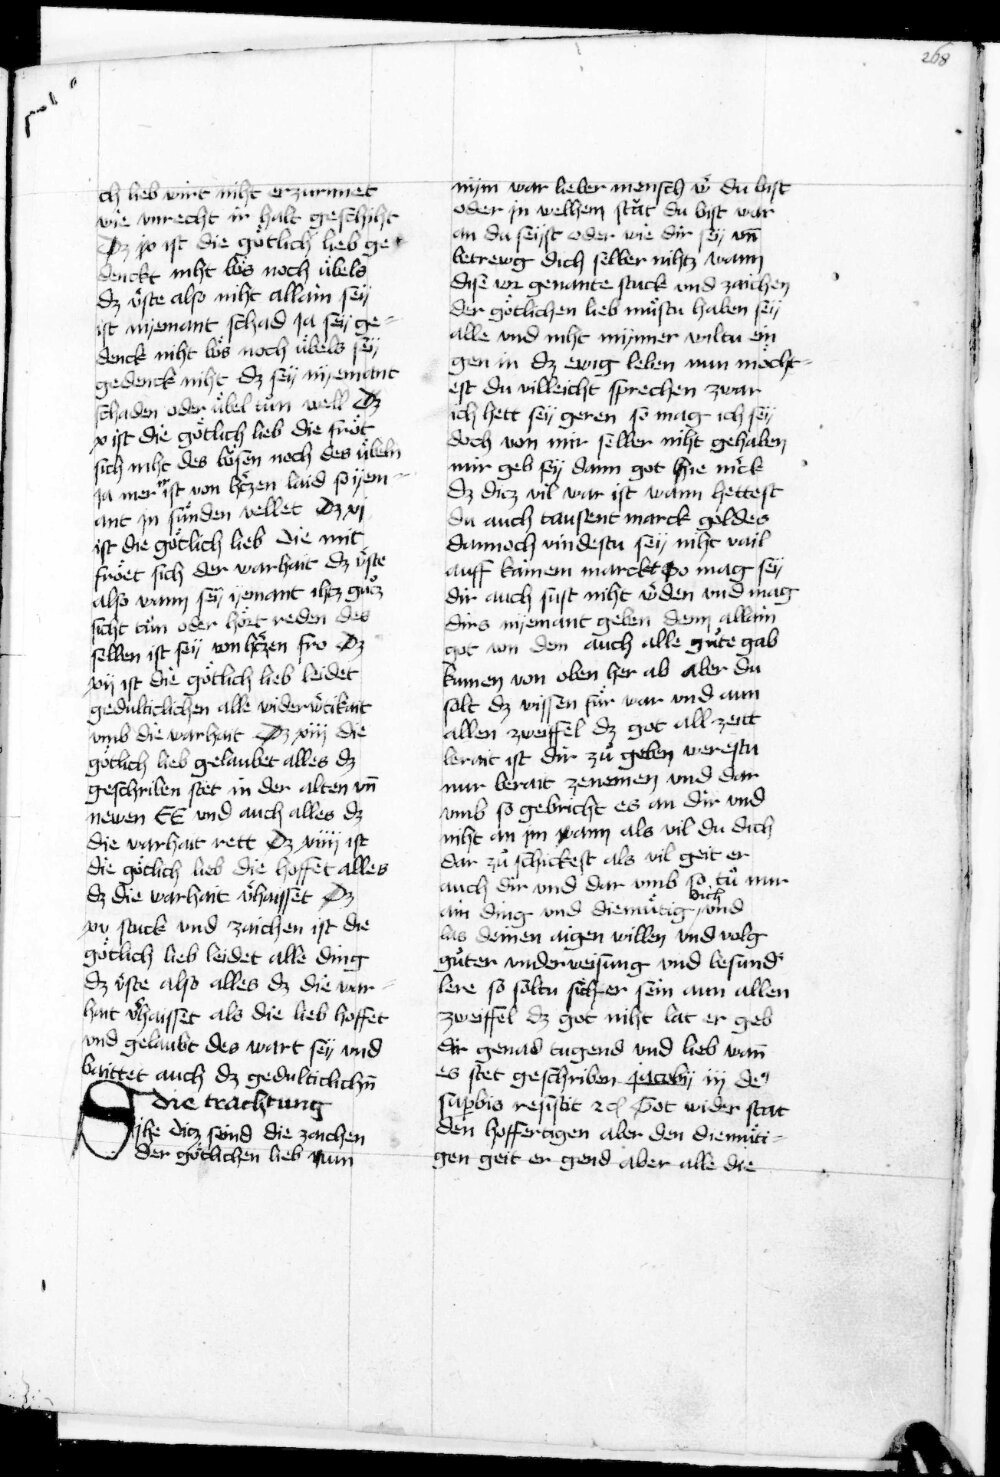 268
ch lieb wirt niht erzurnnet
wie vnrecht ir halt geschiht
Dz ix ist die gȯtlich lieb ge
denckt niht bȯs noch u̇bels
dz v̇ste also niht allain seÿ
ist nÿemant schad Ja seÿ ge=
denck niht bȯs noch u̇bels seÿ
gedenck niht dz seÿ nÿemant
schaden oder u̇bel tu̇n well Dz
x ist die gȯtlich lieb die frȯt
sich niht des bȯsen noch des u̇beln
Ja mer ir ist von h̄tzen laid so ÿem=
ant jn su̇nden vellet Dz xj
ist die gȯtlich lieb die mit
frȯet sich der warhait dz v̇ste
also wann seÿ ÿemant ihtz gůtz
siht tůn oder hȯrt reden des
selben ist seÿ von h̄tzen fro Dz
xij ist die gȯtlich lieb leidet
gedulticlichen alle widerwtikait
vmb die warhait Dz xiij die
gȯtlich lieb gelaubet alles dz
geschriben stet in der alten vn̄
newen EE vnd auch alles dz
die warhait rett Dz xiiij ist
die gȯtlich lieb die hoffet alles
dz die warhait v̇haisset Dz
xv stuck vnd zaichen ist die
gȯtlich lieb leidet alle ding
dz v̇ste also alles dz die war=
hait v̇haisset als die lieb hoffet
vnd gelaubt des wart seÿ vnd
baittet auch dz gedulticlichn̄
die trachtung
Sihe ditz seind die zaichen
der gȯtlichen lieb nun
nÿm war lieber mensch w̄ du bist
oder jn welhem stät du bist war
an du seÿst oder wie dir seÿ vn̄
betreug dich selber nihtz wann
dise vor genante stuck vnd zaichen
der gȯtlichen lieb můstu haben seÿ
alle vnd niht mÿnner wiltu ein
gen in dz ewig leben nun mȯcht=
est du villeicht sprechen zwar
ich hett seÿ geren so mag ich seÿ
doch von mir selber niht gehaben
mir geb seÿ dann got hie mċk
dz ditz vil war ist wann hettest
du auch tausent marck goldes
dannoch vindestu seÿ niht vail
auff kainem marckt So mag seÿ
dir auch sust niht w̄den vnd mag
dirs nÿemant geben denn allain
got von dem auch alle gůte gab
kumen von oben her ab Aber du
solt dz wissen fu̇r war vnd aun
allen zweiffel dz got all zeitt
berait ist dir zů geben werestu
nur berait zenemen vnd dar
vmb so gebricht es an dir vnd
niht an jm wann als vil du dich
dar zů schickest als vil geit er
auch dir vnd dar vmb so tů nur
ain ding vnd diemůtig dich vnd
las deinen aigen willen vnd volg
gůter vnderweisung vnd besund̄
lere so soltu sicher sein aun allen
zweiffel dz got niht lat er geb
dir genad tugend vnd lieb wan̄
es stet geschriben jacobÿ iij de9
supbis resistit zc Got wider stat
den hoffertigen aber den diemůti=
gen geit er gend aber alle die